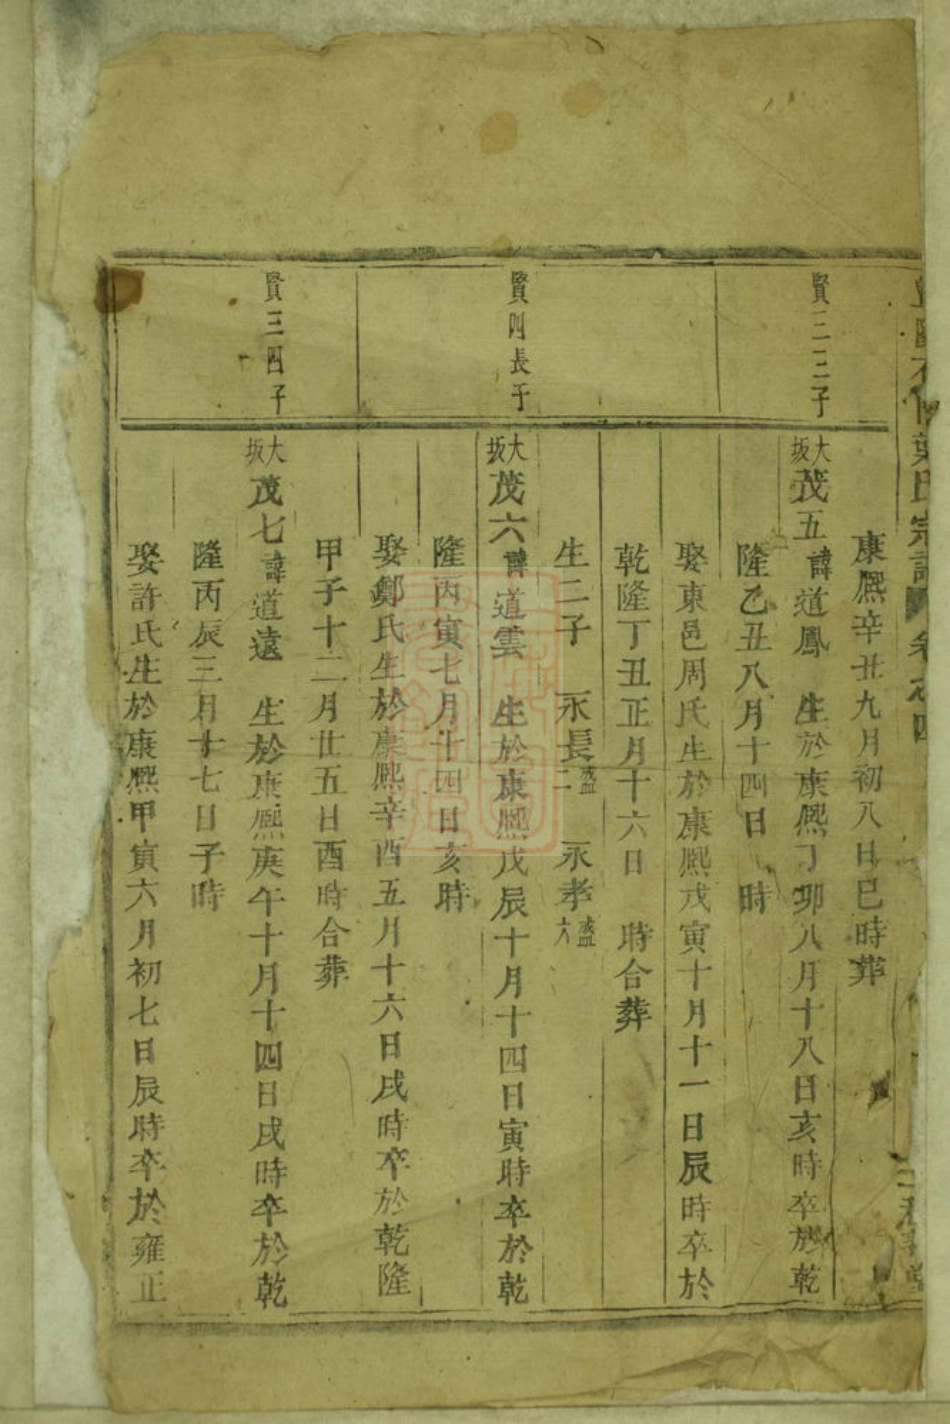 葉氏宗譜 卷之四
康熙辛丑九月初八日巳時葬
賢三三子
大坂茂五諱道鳳 生於康熙丁卯八月十八日亥時卒於乾
隆乙丑八月十四日 時
娶東邑周氏生於康熙戊寅十月十一日辰時卒於
乾隆丁丑正月十六日 時合葬
生二子 永長盛二 永孝盛六
賢四長子
大坂茂六諱道雲 生於康熙戊辰十月十四日寅時卒於乾
隆丙寅七月十四日亥時
娶鄭氏生於康熙辛酉五月十六日戌時卒於乾隆
甲子十二月廿五日酉時合葬
賢三四子
大坂茂七諱道遠 生於康熙庚午十月十四日戌時卒於乾
隆丙辰三月十七日子時
娶許氏生於康熙甲寅六月初七日辰時卒於雍正